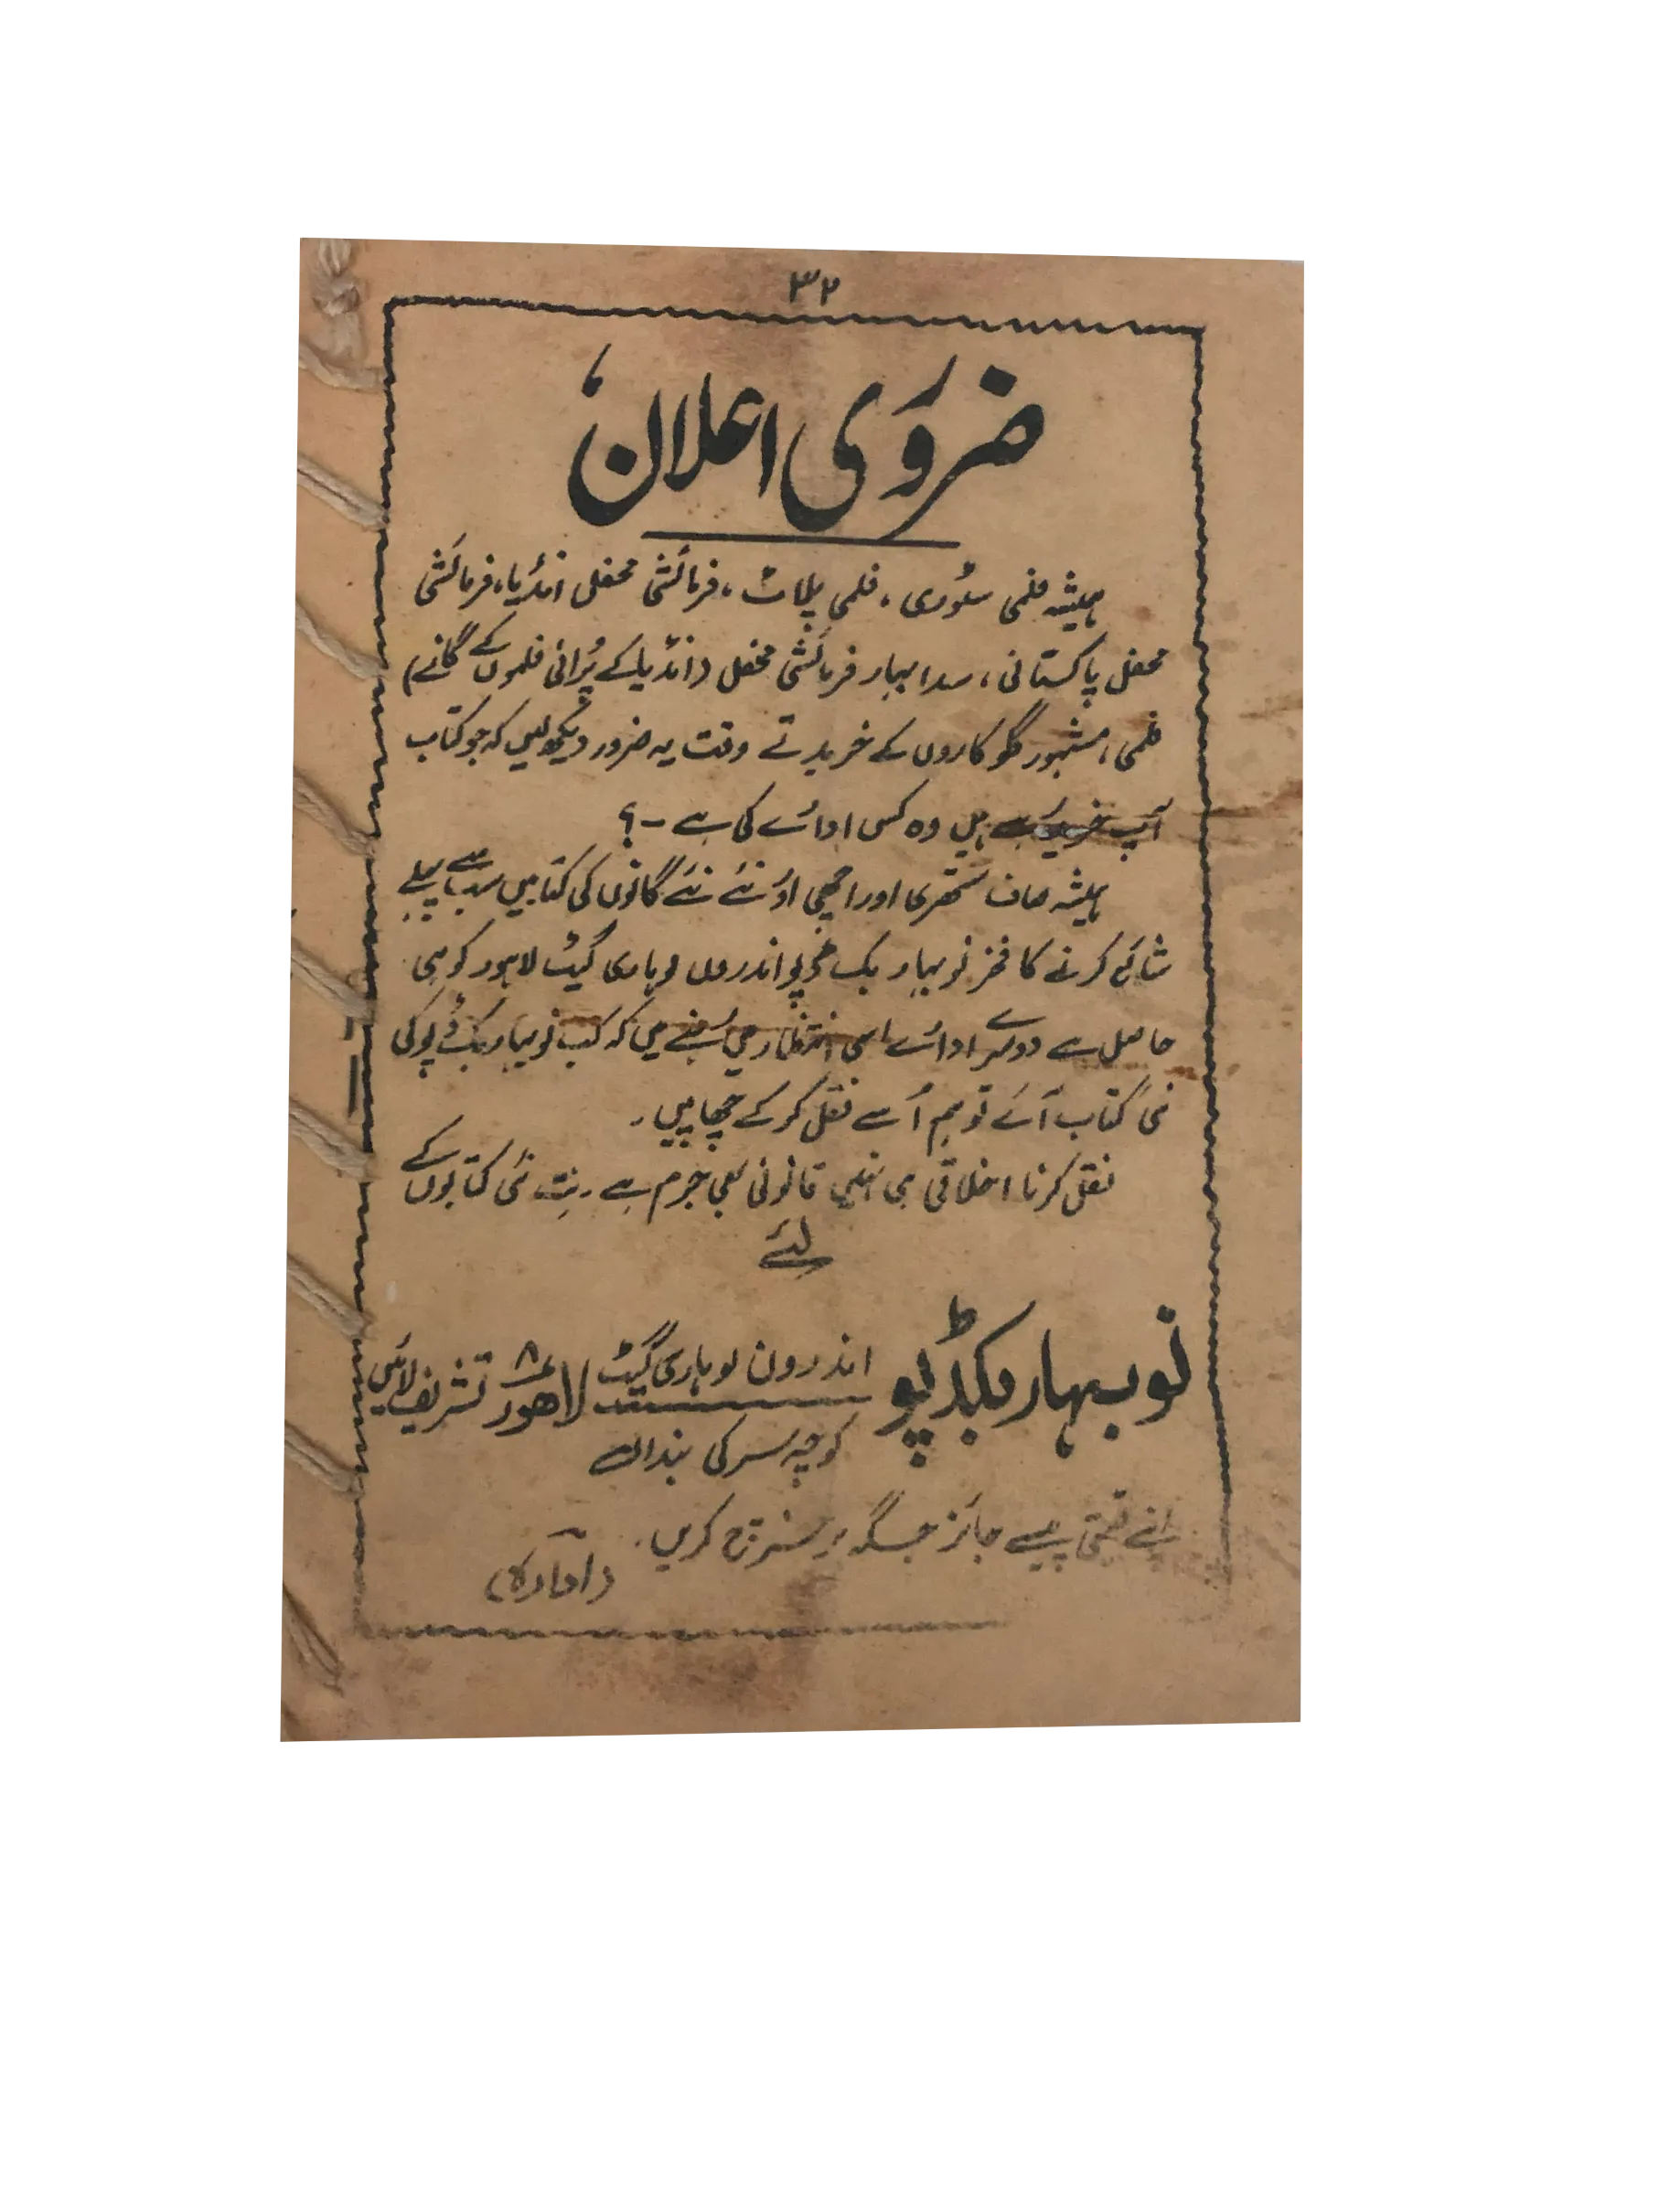 ۳۲
ضروری اعلان
ہمیشہ فلمی سٹوری، فلمی پلاٹ، فرمائشی محفل انڈیا، فرمائشی
محفل پاکستانی، سدا بہار فرمائشی محفل (انڈیا کے پُرانی فلموں کے گانے)
فلمی، مشہور گلوکاروں کے خریدتے وقت یہ ضرور دیکھ لیں کہ جو کتاب
آپ خرید رہے ہیں وہ کس ادارے کی ہے -؟
ہمیشہ صاف ستھری اور اچھی اور نئے نئے گانوں کی کتابیں سب سے پہلے
شائع کرنے کا فخر نوبہار بک ڈپو اندرون لوہاری گیٹ لاہور کو ہی
حاصل ہے دوسرے ادارے اسی انتظار میں رہتے ہیں کہ کب نوبہار بک ڈپو کی
نئی کتاب آئے تو ہم اُسے نقل کر کے چھاپیں۔
نقل کرنا اخلاقی ہی نہیں قانونی بھی جرم ہے۔ نِت نئی کتابوں کے
لئے
نوبہار بکڈپو اندرون لوہاری گیٹ لاھور ۸ تشریف لائیں
کوچہ سرکی بنداں
اپنے قیمتی پیسے جائز جگہ پر خرچ کریں۔
(ادارہ)